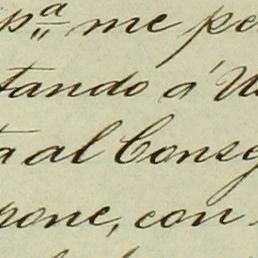 pª me pe
tando á U
a al Conse
rone, con